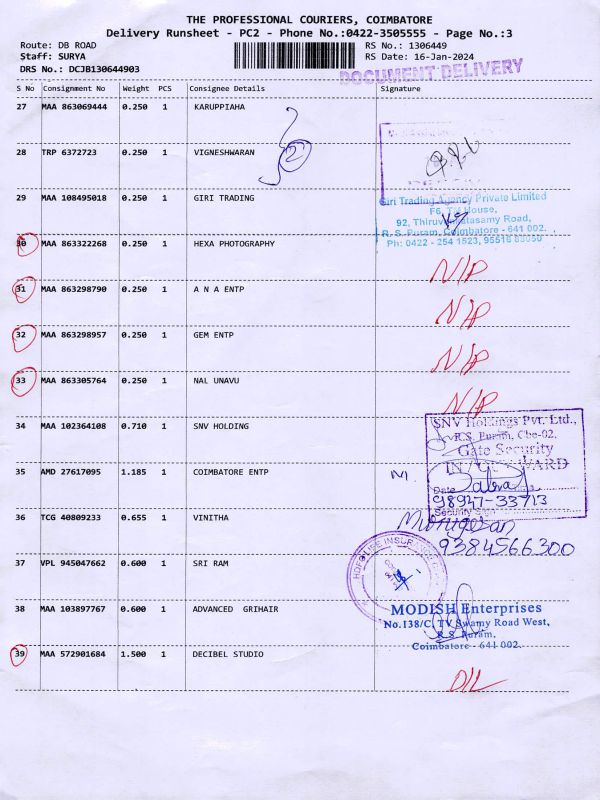 THE PROFESSIONAL COURIERS, COIMBATORE
Delivery Runsheet - PC2 - Phone No.:0422-3505555 - Page No.:3
Route: DB ROAD RS No.: 1306449
Staff: SURYA RS Date: 16-Jan-2024
DRS No.: DCJB130644903
DOCUMENT DELIVERY
S No Consignment No Weight PCS Consignee Details Signature
27 MAA 863069444 0.250 1 KARUPPIAHA
28 TRP 6372723 0.250 1 VIGNESHWARAN
29 MAA 108495018 0.250 1 GIRI TRADING
Giri Trading Agency Private Limited
F6, House,
92, Road,
R. S. Puram, Coimbatore - 641 002.
Ph: 0422 - 254 1523,
30 MAA 863322268 0.250 1 HEXA PHOTOGRAPHY
N/P
31 MAA 863298790 0.250 1 A N A ENTP
N/P
32 MAA 863298957 0.250 1 GEM ENTP
N/P
33 MAA 863305764 0.250 1 NAL UNAVU
N/P
34 MAA 102364108 0.710 1 SNV HOLDING
SNV Holdings Pvt. Ltd.,
R.S. Puram, Cbe-02.
Gate Security
IN / OUTWARD
Date
98947-33713
Security Sign
35 AMD 27617095 1.185 1 COIMBATORE ENTP
M.
Murugesan
36 TCG 40809233 0.655 1 VINITHA
9384566300
37 VPL 945047662 0.600 1 SRI RAM
HDFC LIFE INSURANCE
38 MAA 103897767 0.600 1 ADVANCED GRIHAIR
MODISH Enterprises
No.138/C, TV Swamy Road West,
R.S. Puram,
Coimbatore - 641 002.
39 MAA 572901684 1.500 1 DECIBEL STUDIO
D/L